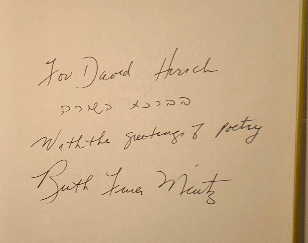 For David Hersch
בברכת השירה
With the greetings of Poetry
Ruth Finer Mintz